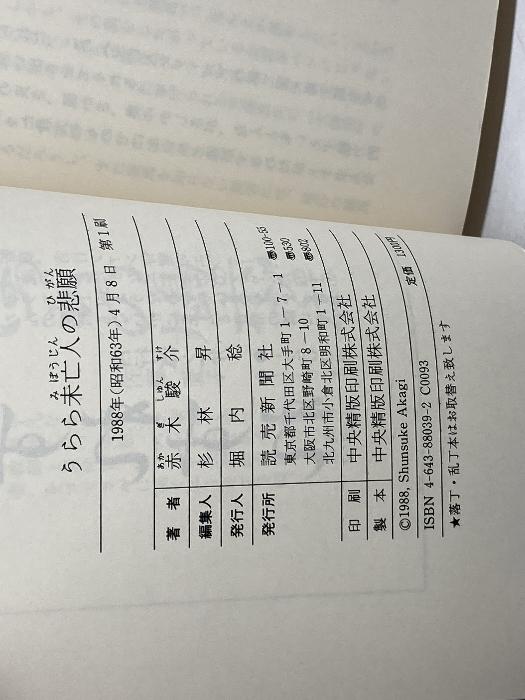 うらら未亡人の悲願
みぼうじん ひがん
1988年(昭和63年)4月8日 第1刷
著者 赤木駿介
あかぎしゅんすけ
編集人 杉林 昇
発行人 堀内 稔
発行所 読売新聞社
東京都千代田区大手町1-7-1 〠100-55
大阪市北区野崎町8-10 〠530
北九州市小倉北区明和町1-11 〠802
印刷 中央精版印刷株式会社
製本 中央精版印刷株式会社
定価 1300円
©1988, Shunsuke Akagi
ISBN 4-643-88039-2 C0093
★落丁・乱丁本はお取替え致します